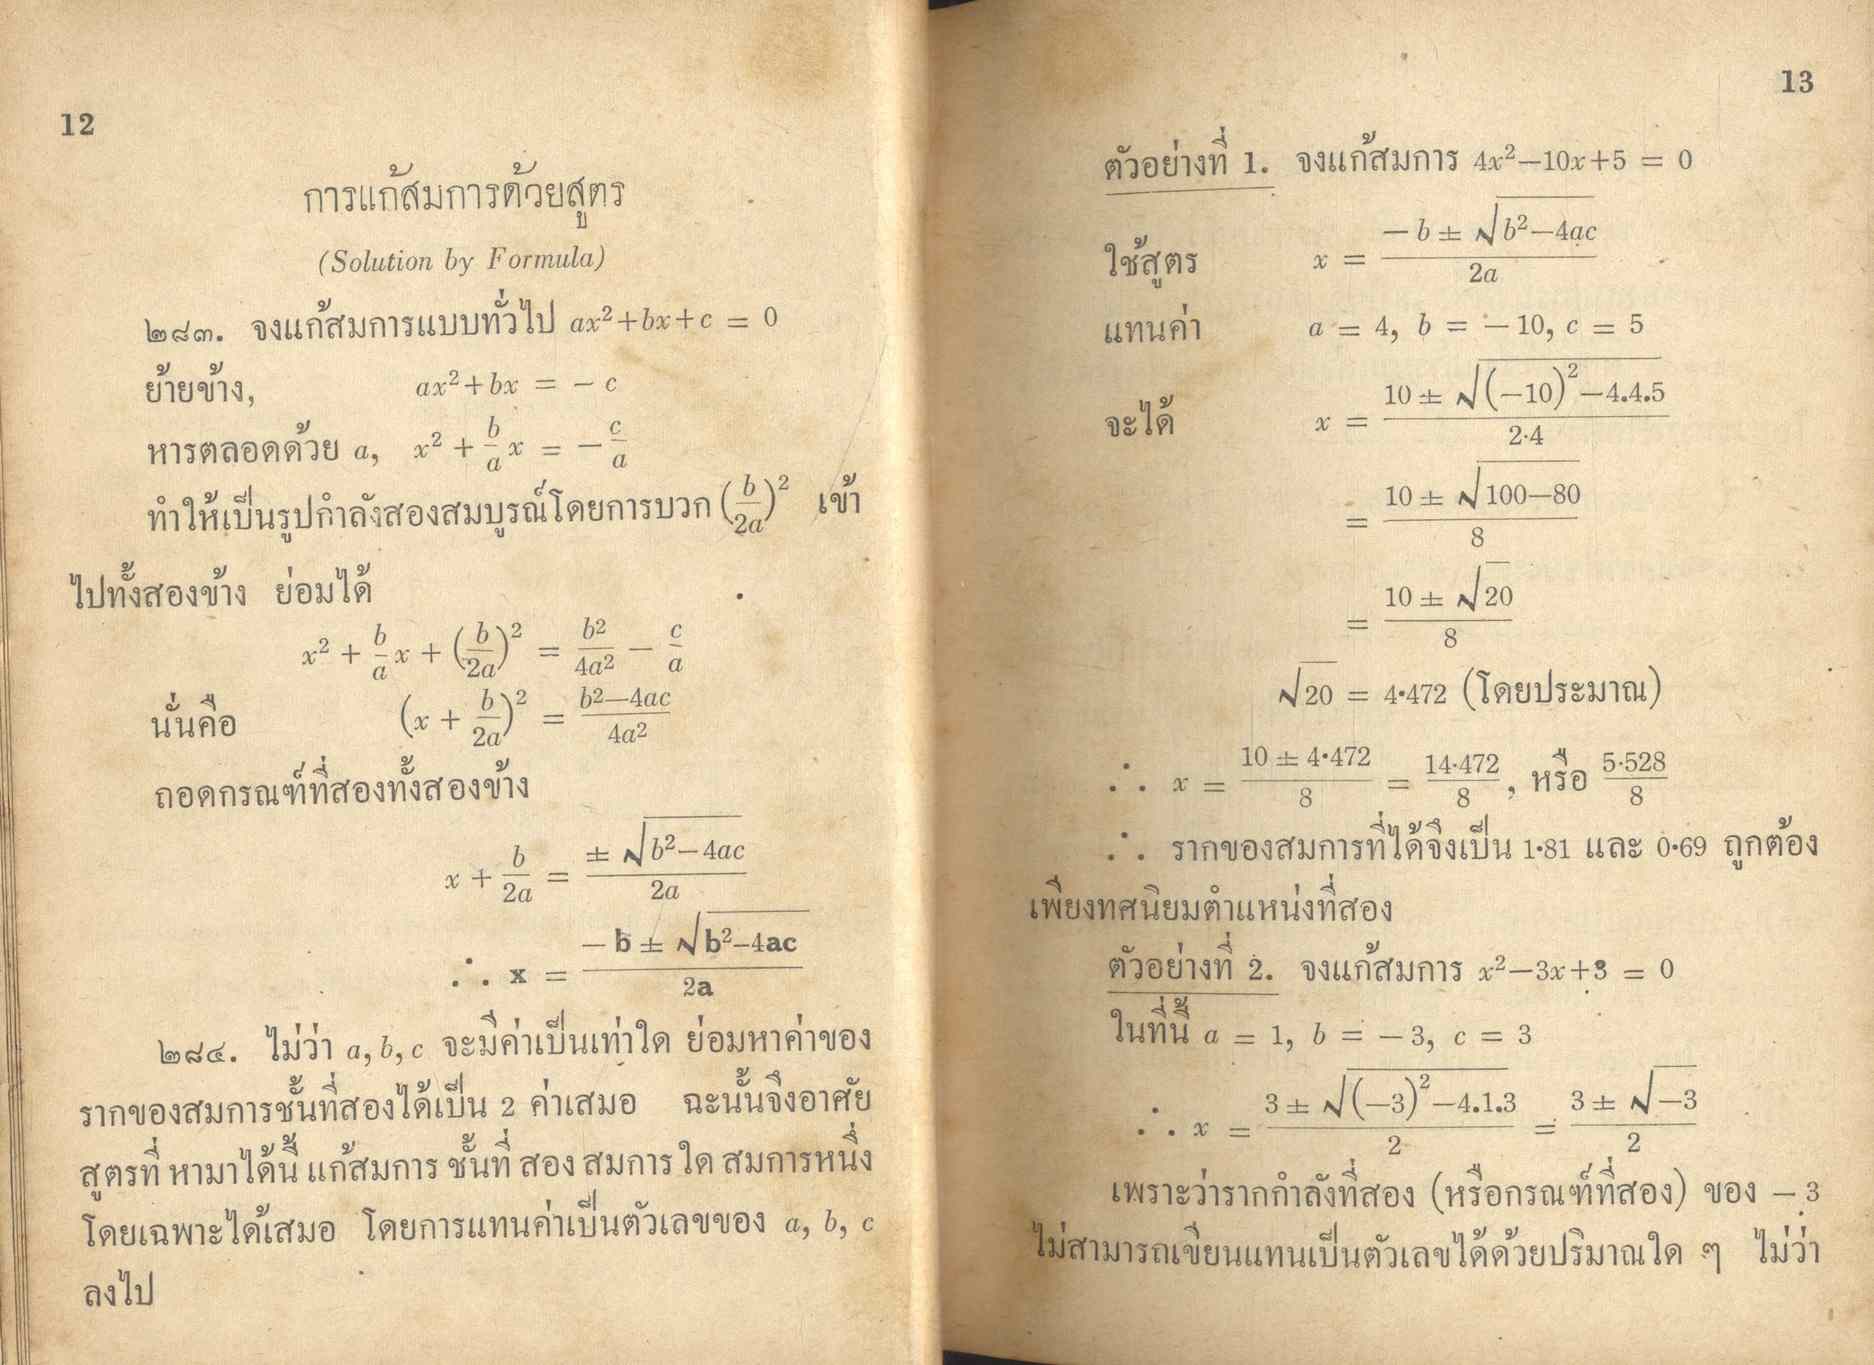 12
การแก้สมการด้วยสูตร
(Solution by Formula)
๒๘๓. จงแก้สมการแบบทั่วไป ax²+bx+c = 0
ย้ายข้าง, ax²+bx = – c
หารตลอดด้วย a, x² + b/a x = – c/a
ทำให้เป็นรูปกำลังสองสมบูรณ์โดยการบวก (b/2a)² เข้า
ไปทั้งสองข้าง ย่อมได้
x² + b/a x + (b/2a)² = b²/4a² – c/a
นั่นคือ (x + b/2a)² = (b²–4ac)/4a²
ถอดกรณฑ์ที่สองทั้งสองข้าง
x + b/2a = ± √(b²–4ac) / 2a
∴ x = (– b ± √(b²–4ac)) / 2a
๒๘๔. ไม่ว่า a, b, c จะมีค่าเป็นเท่าใด ย่อมหาค่าของ
รากของสมการชั้นที่สองได้เป็น 2 ค่าเสมอ ฉะนั้นจึงอาศัย
สูตรที่ หามาได้นี้ แก้สมการ ชั้นที่ สอง สมการ ใด สมการหนึ่ง
โดยเฉพาะได้เสมอ โดยการแทนค่าเป็นตัวเลขของ a, b, c
ลงไป
13
ตัวอย่างที่ 1. จงแก้สมการ 4x²–10x+5 = 0
ใช้สูตร x = (– b ± √(b²–4ac)) / 2a
แทนค่า a = 4, b = – 10, c = 5
จะได้ x = (10 ± √((–10)²–4.4.5)) / 2·4
= (10 ± √(100–80)) / 8
= (10 ± √20) / 8
√20 = 4·472 (โดยประมาณ)
∴ x = (10 ± 4·472)/8 = 14·472/8, หรือ 5·528/8
∴ รากของสมการที่ได้จึงเป็น 1·81 และ 0·69 ถูกต้อง
เพียงทศนิยมตำแหน่งที่สอง
ตัวอย่างที่ 2. จงแก้สมการ x²–3x+3 = 0
ในที่นี้ a = 1, b = – 3, c = 3
∴ x = (3 ± √((–3)²–4.1.3)) / 2 = (3 ± √–3) / 2
เพราะว่ารากกำลังที่สอง (หรือกรณฑ์ที่สอง) ของ – 3
ไม่สามารถเขียนแทนเป็นตัวเลขได้ด้วยปริมาณใด ๆ ไม่ว่า